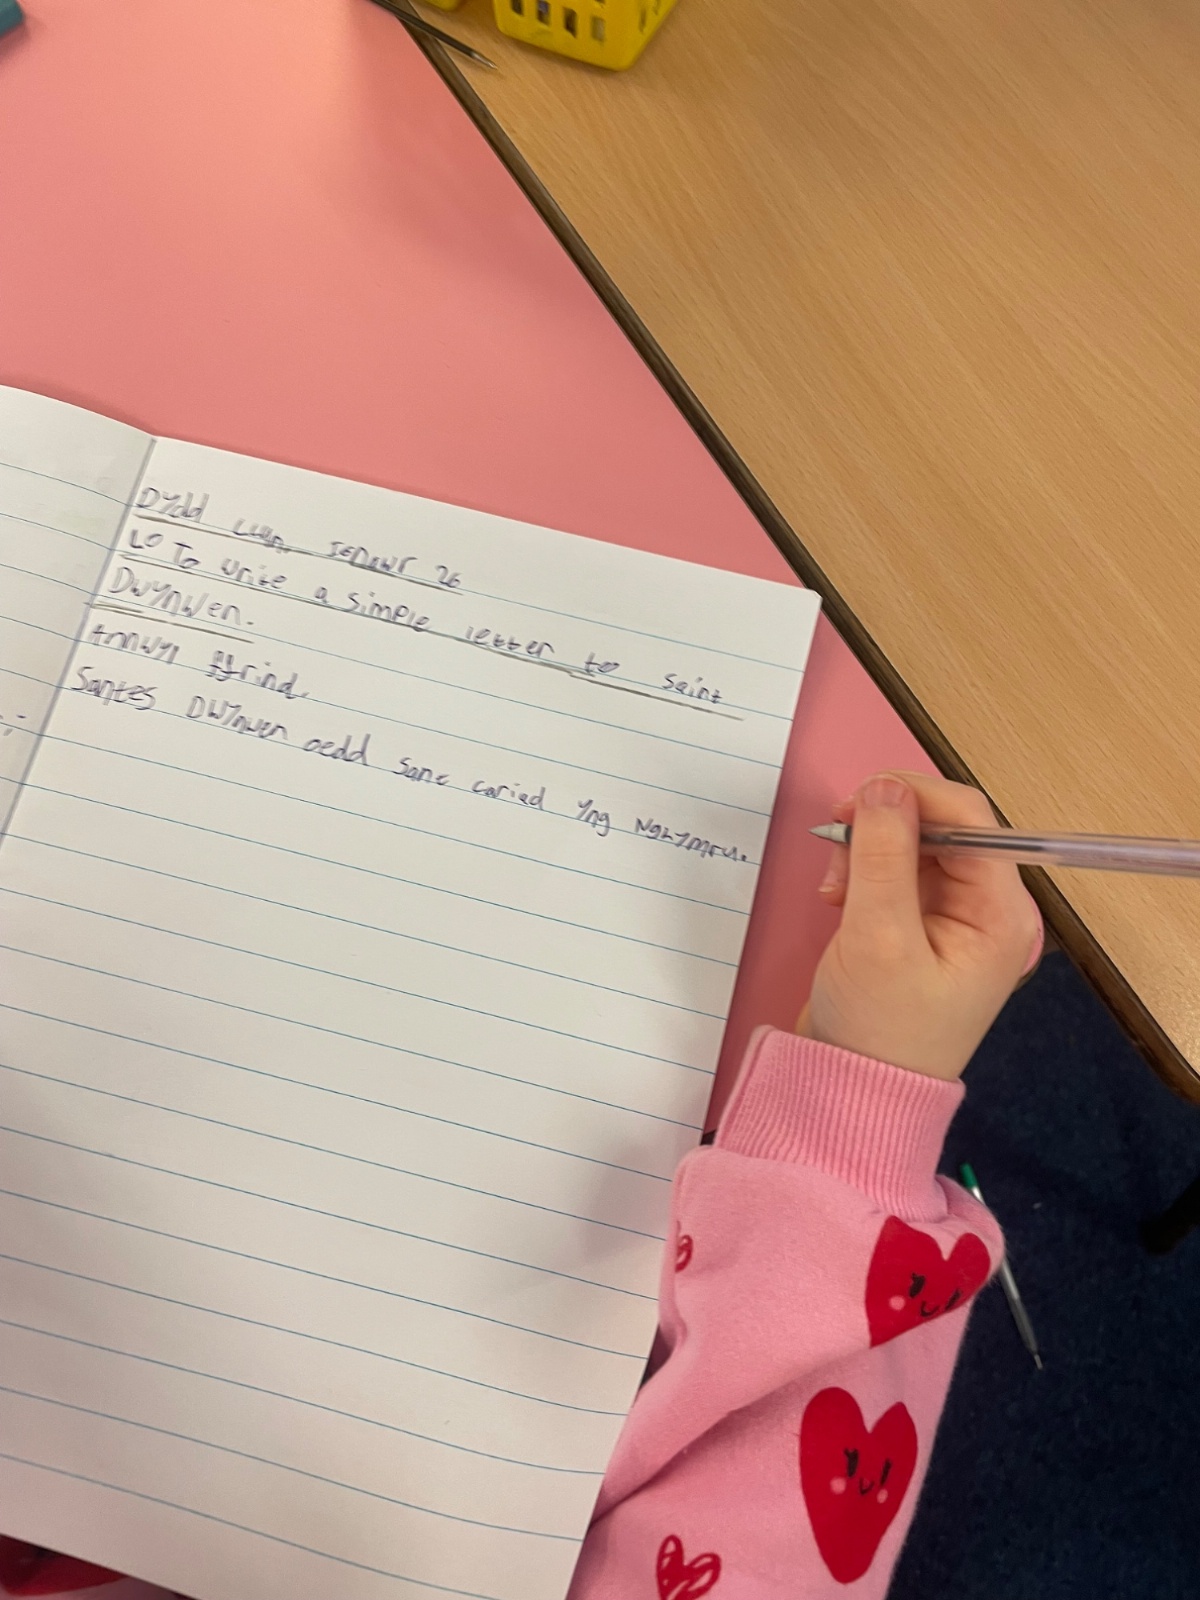 Dydd Llun, Ionawr 26
LO To write a simple letter to Saint
Dwynwen.
Annwyl ffrind,
Santes Dwynwen oedd sant cariad yng Nghymru.